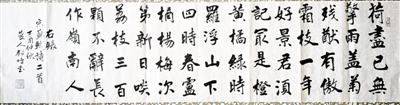 荷盡已無
擎雨蓋菊
殘猶有傲
霜枝一年
好景君須
記最是橙
黃橘綠時
羅浮山下
四時春盧
橘楊梅次
第新日啖
荔枝三百
顆不辭長
作嶺南人
右録
軾詩二首